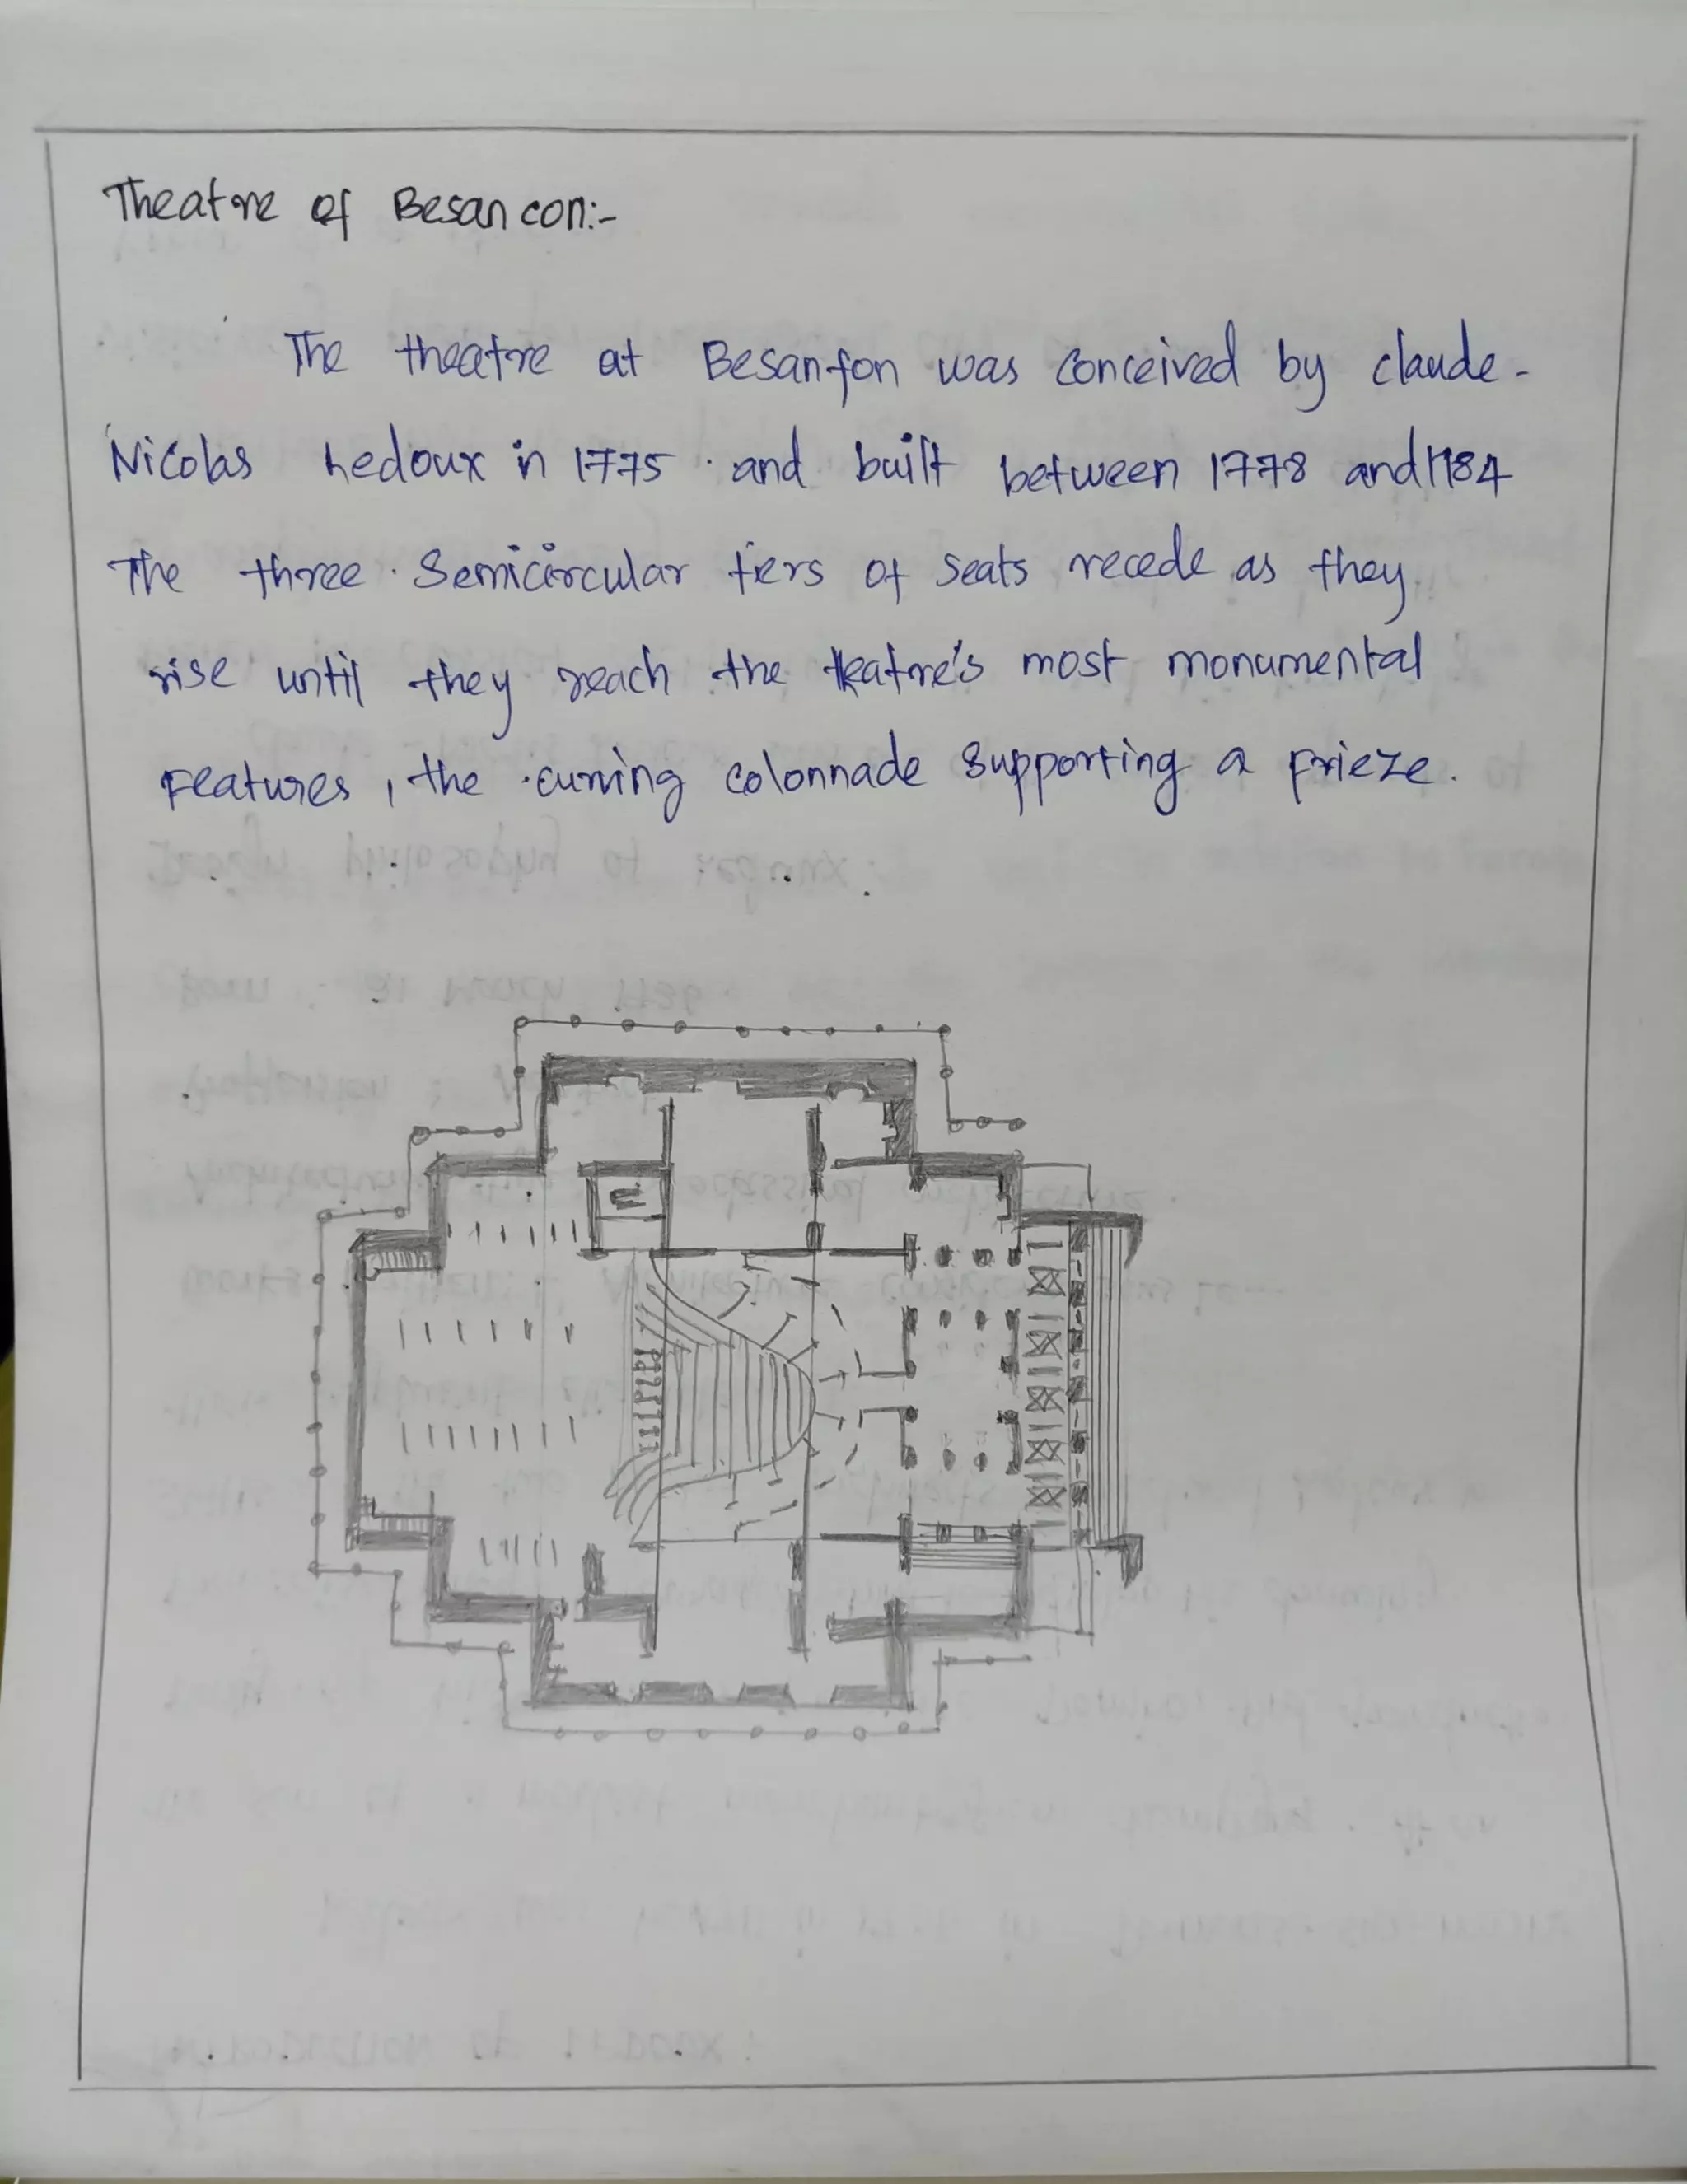 Theatre of Besancon:-
The theatre at Besanfon was conceived by claude-
Nicolas hedoux in 1775 . and built between 1778 and 1784
The three Semicircular tiers of seats recede as they
rise until they reach the theatre's most monumental
Features, the curving colonnade supporting a frieze.